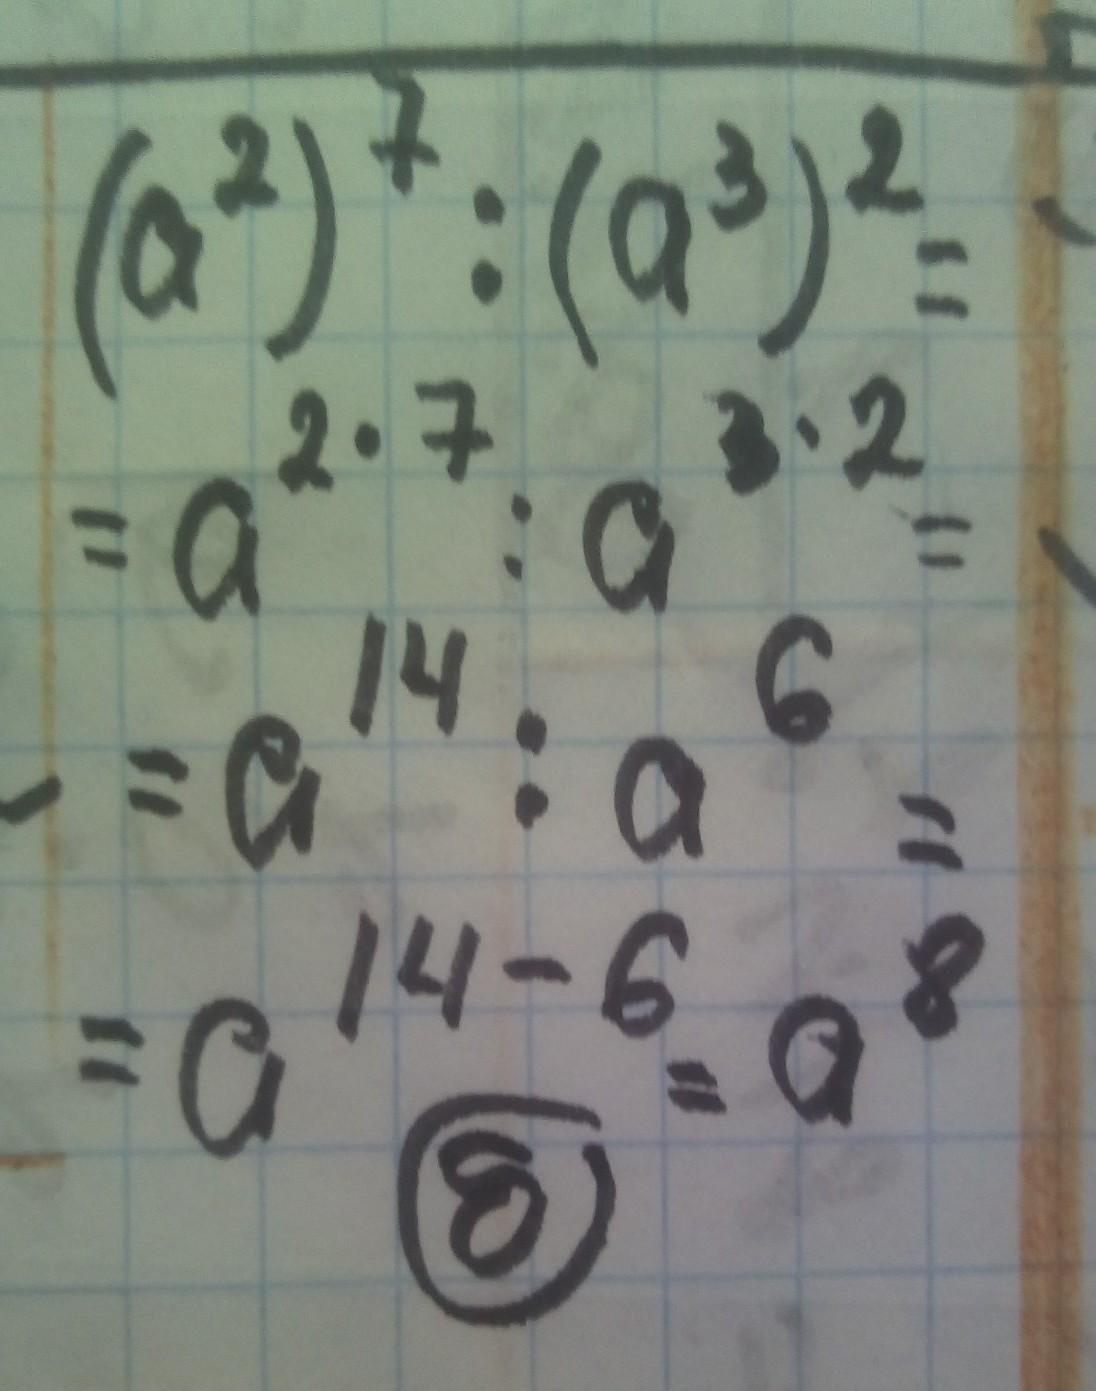 (a²)⁷ : (a³)² =
= a²·⁷ : a³·² =
= a¹⁴ : a⁶ =
= a¹⁴⁻⁶ = a⁸
8